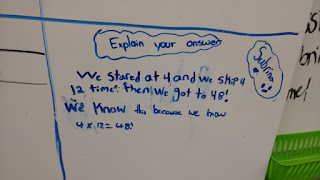 Explain your answer
We stared at 4 and we skip 4
12 time! then we got to 48!
We know this because we know
4 x 12 = 48!